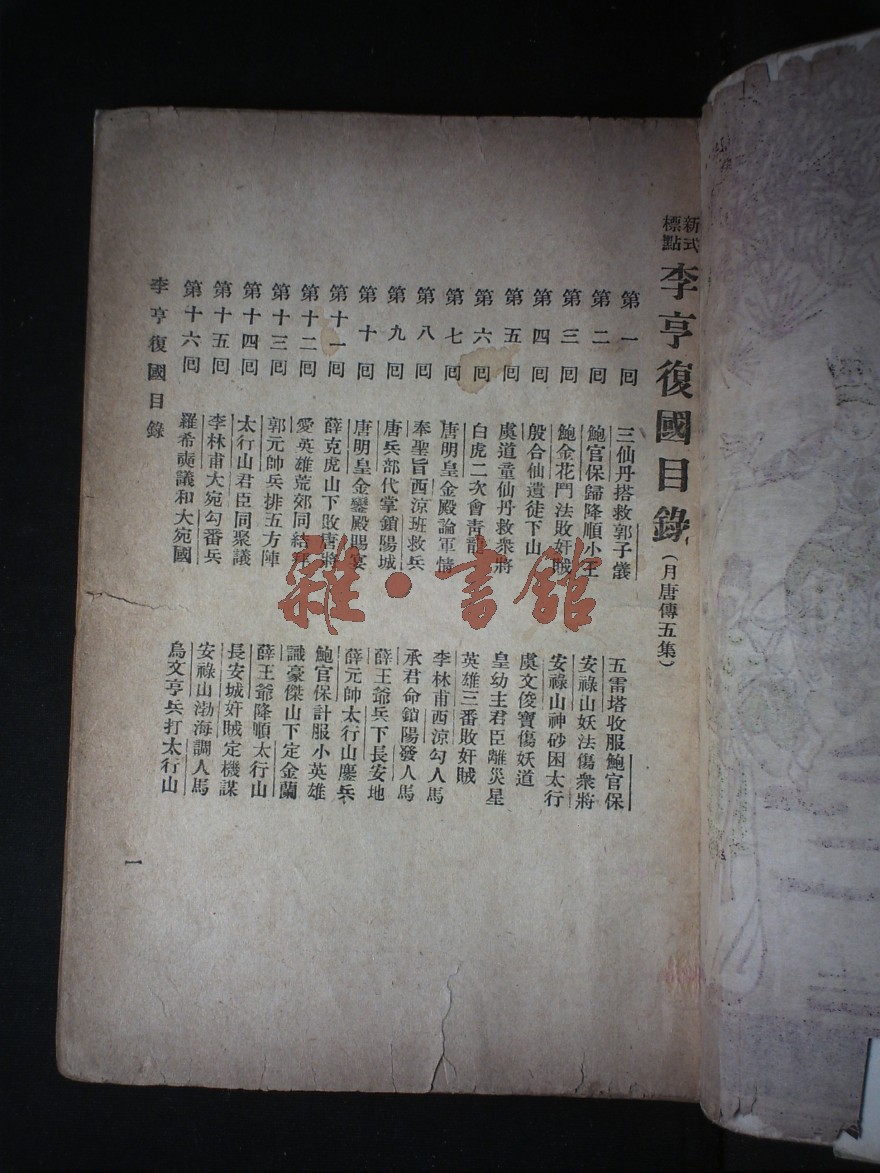 新式標點 李亨復國目錄(月唐傳五集)
第一回 三仙丹搭救郭子儀 五雷塔收服鮑官保
第二回 鮑官保歸降順小王 安祿山妖法傷衆將
第三回 鮑金花鬥法敗奸賊 安祿山神砂困太行
第四回 殷合仙遣徒下山 虞文俊寶傷妖道
第五回 虞道童仙丹救衆將 皇幼主君臣離災星
第六回 白虎二次會靑龍 英雄三番敗奸賊
第七回 唐明皇金殿論軍情 李林甫西涼勾人馬
第八回 奉聖旨西涼班救兵 承君命鎖陽發人馬
第九回 唐兵部代掌鎖陽城 薛王爺兵下長安地
第十回 唐明皇金鑾殿賜宴 薛元帥太行山鏖兵
第十一回 薛克虎山下敗唐將 鮑官保計服小英雄
第十二回 愛英雄荒郊同結拜 識豪傑山下定金蘭
第十三回 郭元帥兵排五方陣 薛王爺降順太行山
第十四回 太行山君臣同聚議 長安城奸賊定機謀
第十五回 李林甫大宛勾番兵 安祿山渤海調人馬
第十六回 羅希奭議和大宛國 烏文亨兵打太行山
李亨復國目錄
一
雜·書館